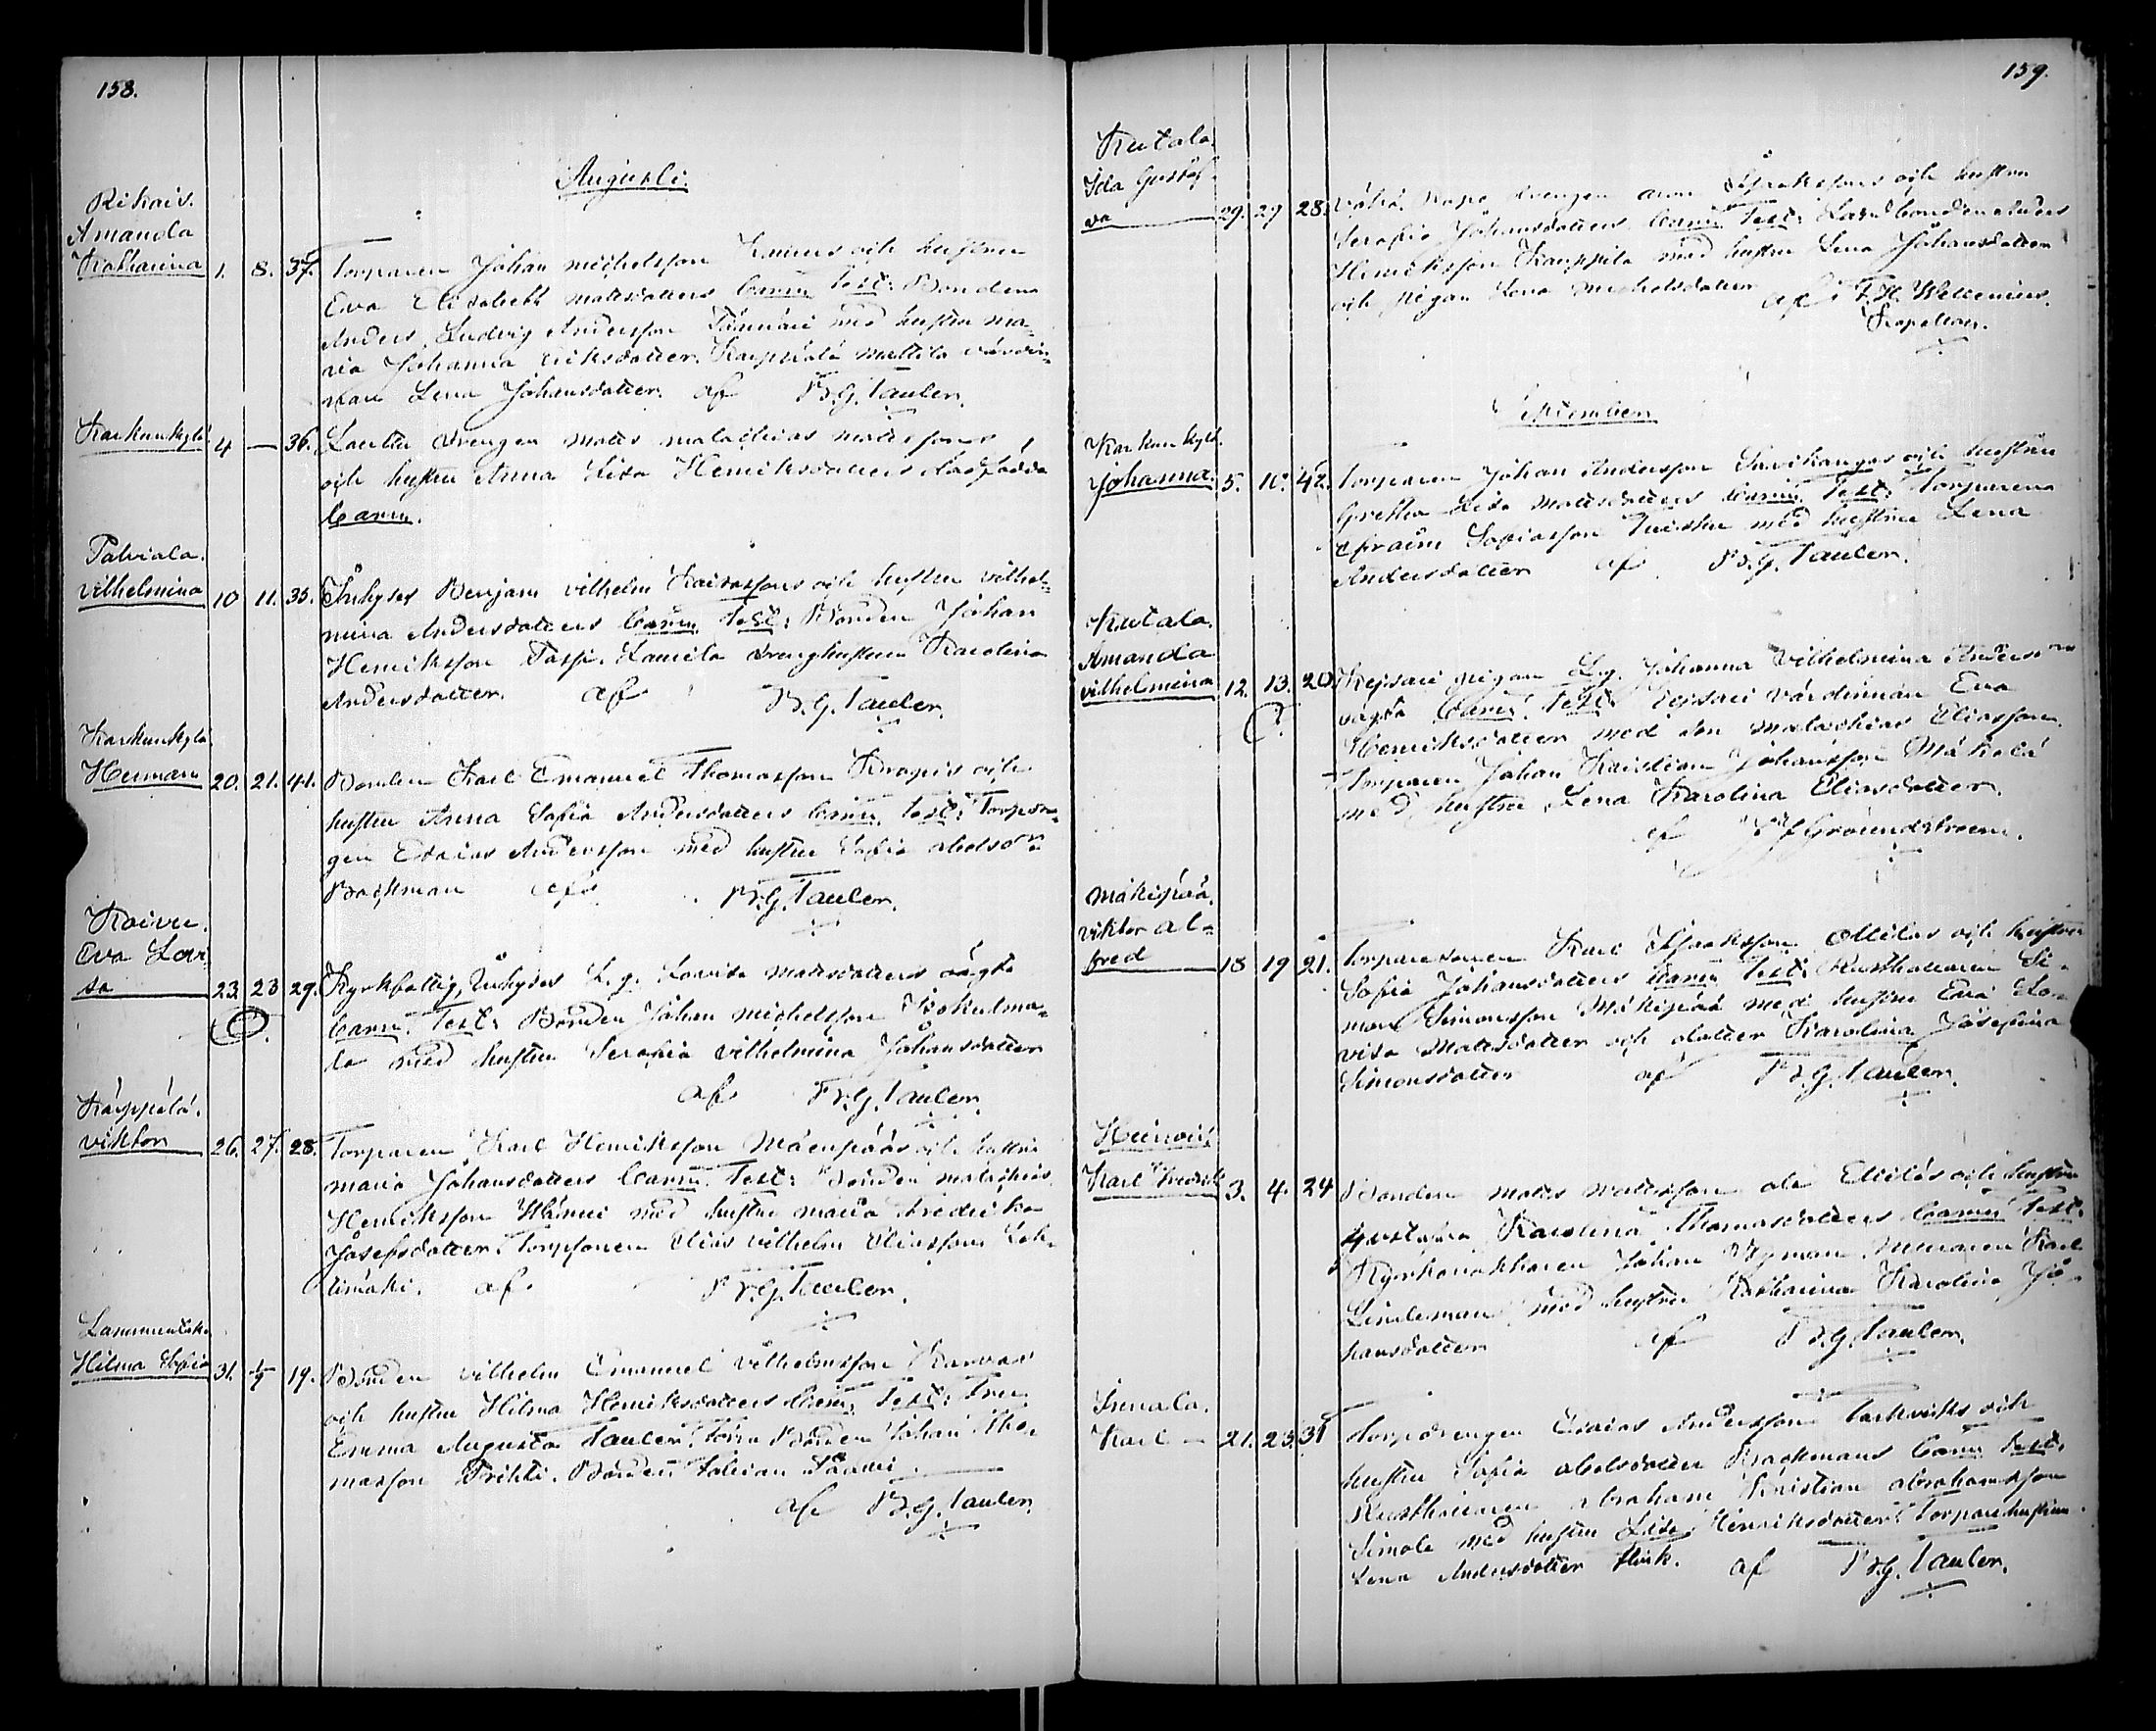 158.
Augusti.
Rikais.
Amanda
Katharina 1. 8. 37. Torparen Johan Michelsson och hustrun
Eva Elisabeth Mattsdotters barn. Test: Bonden
Anders Ludvig Andersson med hustru Ma-
ria Johanna Eriksdotter. Mattila värdin-
nan Lena Johansdotter. af B.G. Taulér.
Karkunkylä 4 — 36. Lautta drengen Matts Malachias Mattssons
och hustru Anna Lisa Henriksdotters dödfödda
barn.
Palviala.
Vilhelmina 10 11. 35. Inhyses Benjam Vilhelm och hustru Vilhel-
mina Andersdotters barn. Test: Bonden Johan
Henriksson Tassi. Laurila drenghustrun Karolina
Andersdotter. af B.G. Taulér.
Karkunkylä.
Herman 20. 21. 41. Bonden Karl Emanuel Thomasson och
hustru Anna Sofia Andersdotters barn. Test: Torpdren-
gen Esaias Andersson med hustru Sofia Abelsdr
Backman af B.G. Taulér.
Koivu.
Eva Lovi-
sa 23. 23 29. Kyrkfattig, Inhyses L. g. Lovisa Mattsdotters oägta
barn. Test: Bonden Johan Michelsson
med hustru Serafia Vilhelmina Johansdotter
af B.G. Taulér.
Käyppälä.
Viktor 26. 27. 28. Torparen Karl Henriksson Mäenpääs och hustru
Maria Johansdotters barn. Test: Bonden Malachias
Henriksson med hustru Maria Fredrika
Josefsdotter. Torpsonen Elias Vilhelm Eliasson Leh-
timäki. af B.G. Taulér.
Hilma Sofia 31. 1/9 19. Bonden Vilhelm Emanuel Vilhelmsson
och hustru Hilma Henriksdotters barn. Test: Fru
Emma Augusta Taulér. Bonden Johan Tho-
masson Prihti. Bonden Fabian
af B.G. Taulér.
159.
Kutala.
Ida Gustaf-
va 29. 29 28. drengen och hustru
Serafia Johansdotters barn. Test: Landbonden Anders
Henriksson Kauppila med hustru Lena Johansdotter
och pigan Lena Michelsdotter af F.H. Wellenius.
Kapellan.
September
Karkunkylä.
Johanna. 5. 10. 42. Torparen Johan Andersson Savikangas och hustru
Gretha Lisa Mattsdotters barn. Test: Torparen
Efraim Sofiasson med hustru Lena
Andersdotter af B.G. Taulér.
Kutala.
Amanda
Vilhelmina 12. 13. 20. Kejsari pigan L.g. Johanna Vilhelmina Anders
oägta barn. Test: Kejsari värdinnan Eva
Henriksdotter med son Malachias Eliasson.
Torparen Johan Kristian Johansson Mäkelä
med hustru Lena Karolina Eliasdotter.
af Groundstroem.
Mäkipää.
Viktor Al-
fred 18 19 21. Torparesonen Karl Isaksson Ollilas och hustru
Sofia Johansdotters barn. Test: Rusthållaren Si-
mon Simonsson Mäkipää med hustru Eva Lo-
visa Mattsdotter och dotter Karolina Josefina
Simonsdotter af B.G. Taulér.
Karl Fredrik 3. 4. 24 Bonden Matts Mattsson och hustru
Gustafva Karolina Thomasdotters barn. Test:
Kyrkovaktaren Johan Nyman. Muraren Karl
Lindeman med hustru Katharina Karolina Jo-
hansdotter af B.G. Taulér.
Karl — 21. 23. 31 Torpdrengen Esaias Andersson och
hustru Sofia Abelsdotter Backmans barn. Test:
Rusthållaren Abraham Kristian Abrahamsson
Simola med hustru Lisa Henriksdotter. Torparehustrun
Lena Andersdotter af B.G. Taulér.